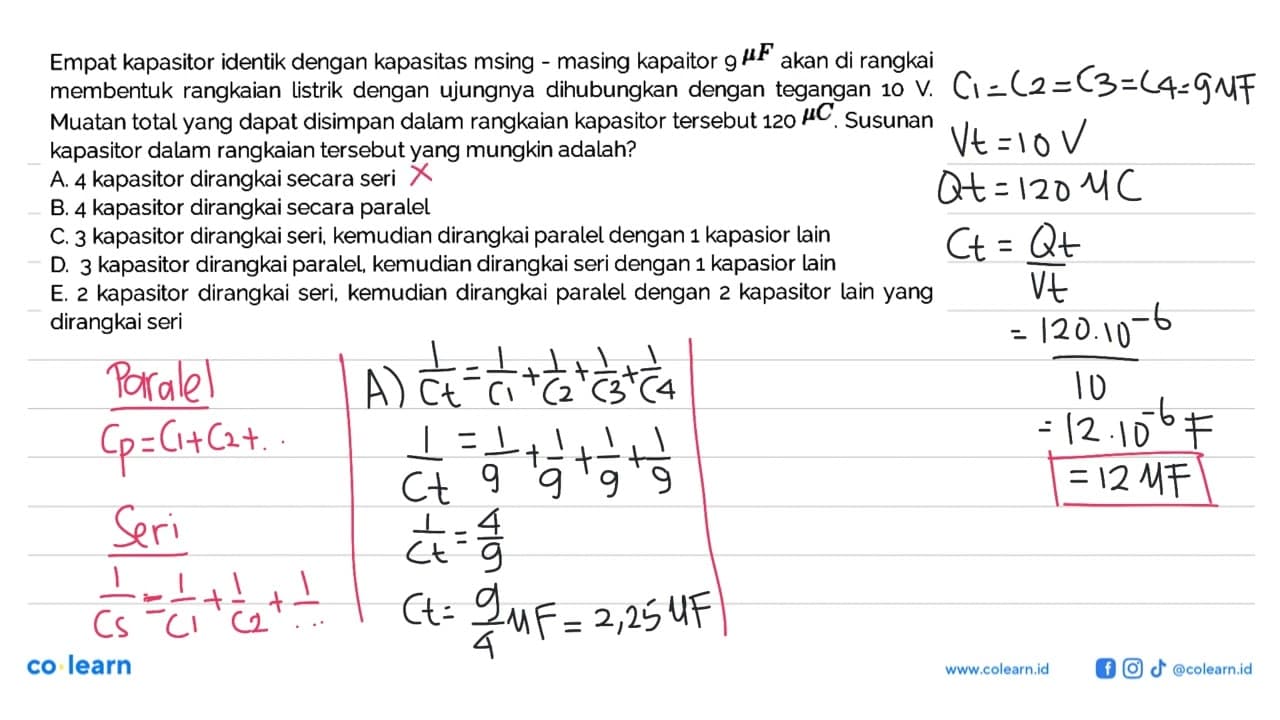 Empat kapasitor identik dengan kapasitas msing - masing kapaitor 9 μF akan di rangkai
membentuk rangkaian listrik dengan ujungnya dihubungkan dengan tegangan 10 V.
Muatan total yang dapat disimpan dalam rangkaian kapasitor tersebut 120 μC. Susunan
kapasitor dalam rangkaian tersebut yang mungkin adalah?
A. 4 kapasitor dirangkai secara seri X
B. 4 kapasitor dirangkai secara paralel
C. 3 kapasitor dirangkai seri, kemudian dirangkai paralel dengan 1 kapasior lain
D. 3 kapasitor dirangkai paralel, kemudian dirangkai seri dengan 1 kapasior lain
E. 2 kapasitor dirangkai seri, kemudian dirangkai paralel dengan 2 kapasitor lain yang
dirangkai seri
C1=C2=C3=C4=9μF
Vt=10V
Qt=120μC
Ct = Qt/Vt
= 120.10^-6/10
= 12.10^-6 F
= 12 μF
Paralel
Cp=C1+C2+..
Seri
1/Cs=1/C1+1/C2+1/...
A) 1/Ct=1/C1+1/C2+1/C3+1/C4
1/Ct=1/9+1/9+1/9+1/9
1/Ct=4/9
Ct=9/4 μF=2,25 μF
co·learn
www.colearn.id
@colearn.id